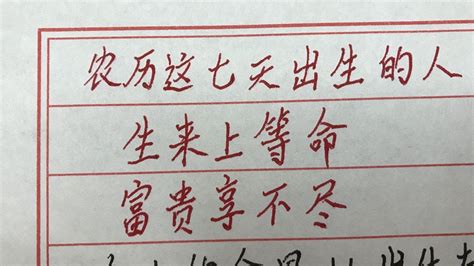 农历这七天出生的人
生来上等命
富贵享不尽